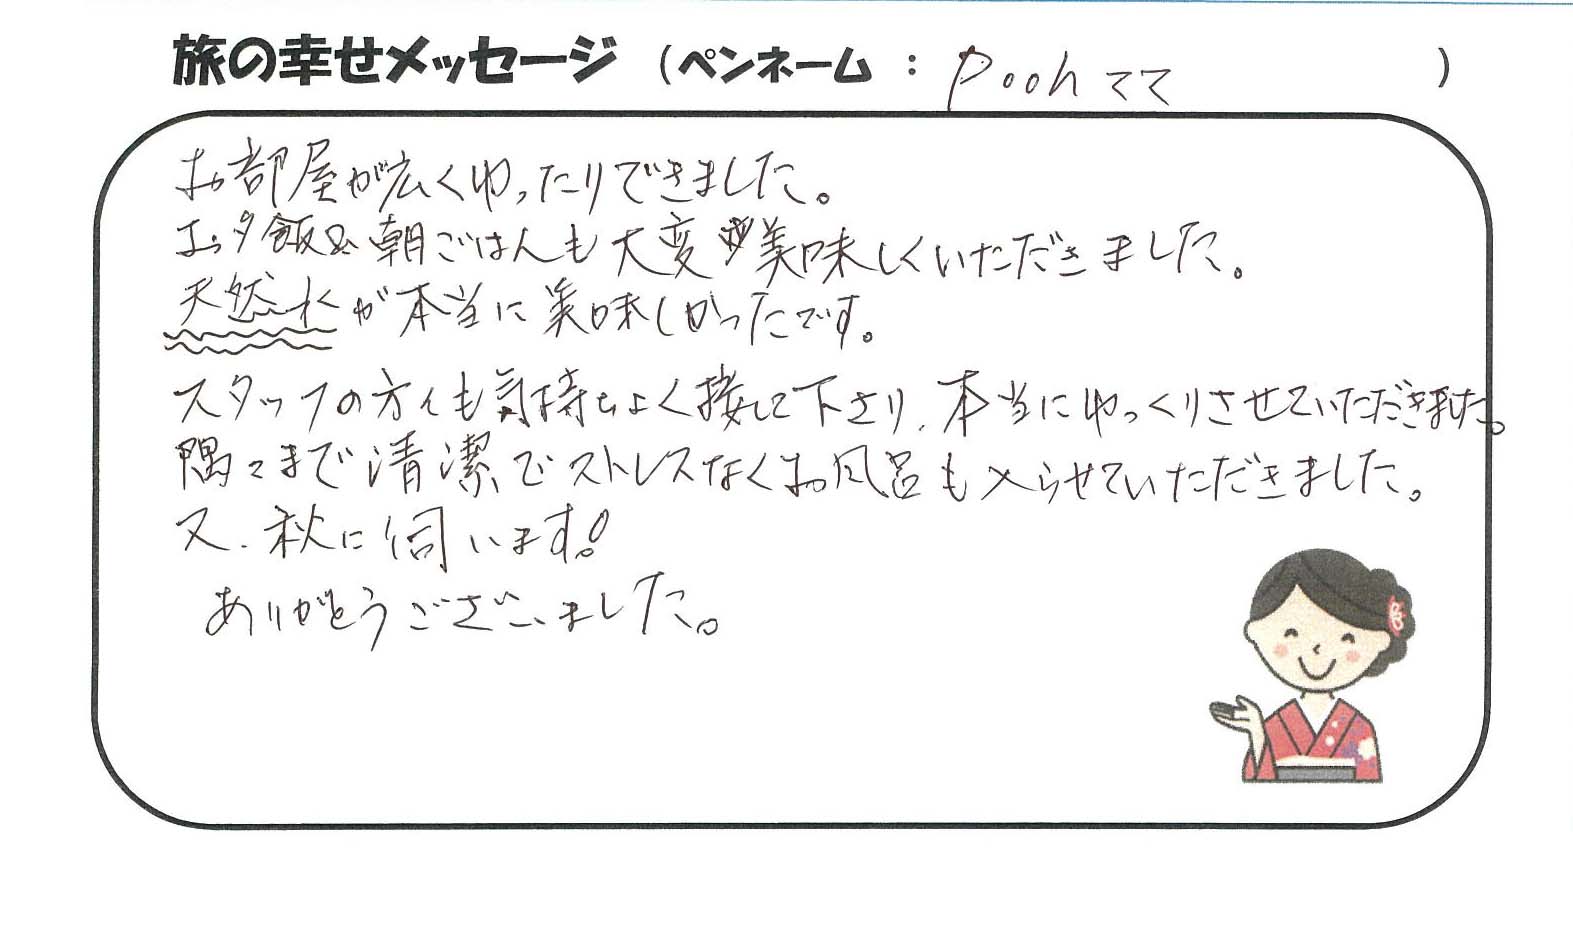 旅の幸せメッセージ (ペンネーム : Pooh てて )
お部屋が広くゆったりできました。
お夕飯&朝ごはんも大変美味しくいただきました。
天然水が本当に美味しかったです。
スタッフの方々も気持ちよく接して下さり、本当にゆっくりさせていただきました。
隅々まで清潔でストレスなくお風呂も入らせていただきました。
又、秋に伺います!
ありがとうございました。